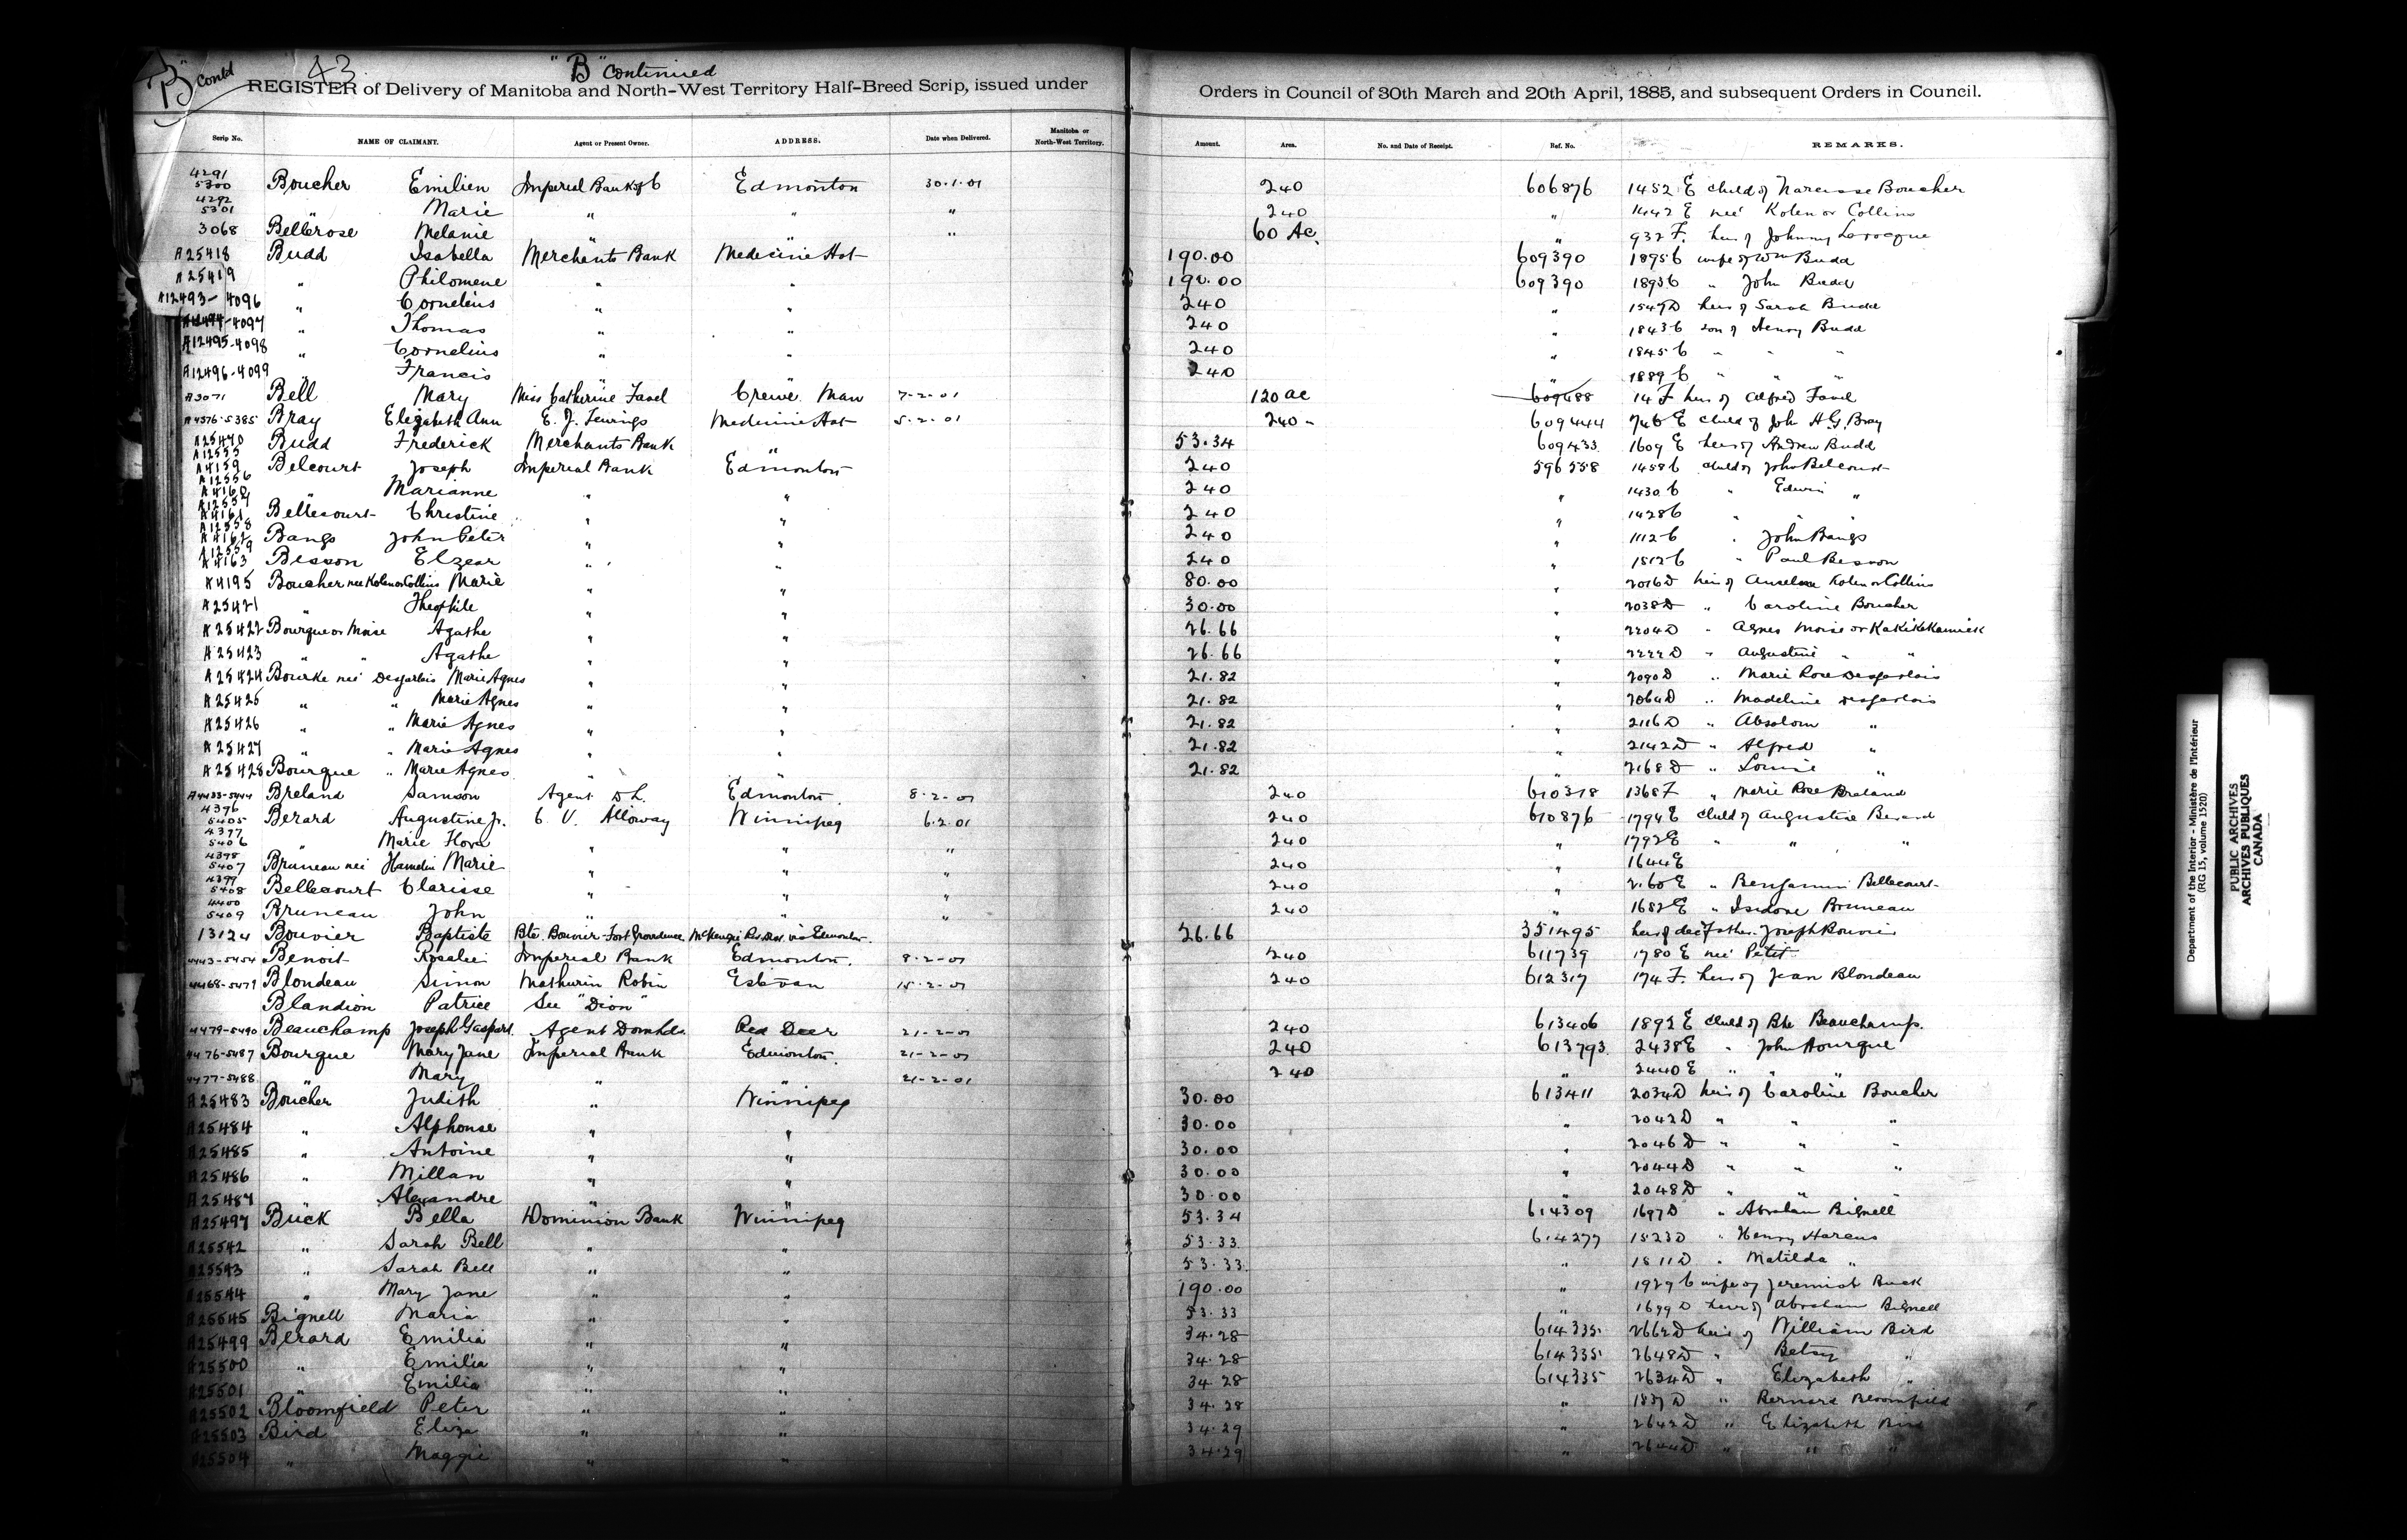 "B" contd
43
"B" continued
REGISTER of Delivery of Manitoba and North-West Territory Half-Breed Scrip, issued under Orders in Council of 30th March and 20th April, 1885, and subsequent Orders in Council.
Scrip No. NAME OF CLAIMANT. Agent or Present Owner. ADDRESS. Date when Delivered. Manitoba or North-West Territory. Amount. Area. No. and Date of Receipt. Ref. No. REMARKS.
4291 5300 Boucher Emilien Imperial Bank of C Edmonton 30.1.01 240 606876 1452 E child of Narcisse Boucher
4292 5301 " Marie " " " 240 " 1442 E neé Kolen or Collins
3068 Bellerose Melanie " " " 60 Ac. " 932 F. heir of Johnny Larocque
A25418 Budd Isabella Merchants Bank Medicine Hat 190.00 609390 1895 C wife of Wm Budd
A25419 " Philomene " " 190.00 609390 1893 C " John Budd
A12493-4096 " Cornelius " " 240 " 1547 D heir of Sarah Budd
A12494-4097 " Thomas " " 240 " 1843 C son of Henry Budd
A12495-4098 " Cornelius " " 240 " 1845 C " " "
A12496-4099 " Francis " " 240 " 1889 C " " "
A3071 Bell Mary Miss Catherine Favel Crewe Man 7-2-01 120 ac 609488 14 F heir of Alfred Favel
A4376-5385 Bray Elizabeth Ann E. J. Fewings Medicine Hat 5-2-01 240 609444 746 E child of John H.G. Bray
A25470 Budd Frederick Merchants Bank " 53.34 609433 1609 E heir of Andrew Budd
A12555 A4159 Belcourt Joseph Imperial Bank Edmonton 240 596558 1458 C child of John Belcourt
A12556 A4160 " Marianne " " 240 " 1430 C " Edwin "
A12557 A4161 Bellecourt Christine " " 240 " 1428 C " "
A12558 A4162 Bangs John Peter " " 240 " 1112 C " John Bangs
A12559 A4163 Bisson Elzear " " 240 " 1512 C " Paul Besson
A4195 Boucher nee Kolen or Collins Marie " " 80.00 " 2016 D heir of Anselme Kolen or Collins
A25421 " Theophile " " 30.00 " 2038 D " Caroline Boucher
A25422 Bourque or Moise Agathe " " 26.66 " 2204 D " Agnes Moise or Kakikekamick
A25423 " " Agathe " " 26.66 " 2222 D " Augustine " "
A25424 Bourke neé Desjarlais Marie Agnes " " 21.82 " 2090 D " Marie Rose Desjarlais
A25425 " " Marie Agnes " " 21.82 " 2064 D " Madeline Desjarlais
A25426 " " Marie Agnes " " 21.82 " 2116 D " Absolom "
A25427 " " Marie Agnes " " 21.82 " 2142 D " Alfred "
A25428 Bourque " Marie Agnes " " 21.82 " 2168 D " Louise "
A4433-5444 Breland Samson Agent D.L. Edmonton. 8.2-01 240 610318 1368 F " Marie Rose Breland
4396 5405 Berard Augustine Jr. C. V. Alloway Winnipeg 6.2.01 240 610876 1794 E child of Augustine Berard
4397 5406 " Marie Flora " " " 240 " 1792 E " " "
4398 5407 Bruneau neé Hamelin Marie " " " 240 " 1644 E
4399 5408 Bellecourt Clarisse " " " 240 " 2160 E " Benjamin Bellecourt
4400 5409 Bruneau John " " " 240 " 1682 E " Isidore Bruneau
13124 Bouvier Baptiste Bte. Bouvier Fort Providence McKenzie Riv. Dist. via Edmonton. 26.66 351495 heir of decd father Joseph Bouvier
4443-5454 Benoit Rosalie Imperial Bank Edmonton. 8-2-01 240 611739 1780 E neé Petit
4468-5479 Blondeau Simon Mathurin Robin Estevan 15-2-01 240 612317 174 F. heir of Jean Blondeau
Blandion Patrice See "Dion"
4479-5490 Beauchamp Joseph Gaspard. Agent Dom Lds. Red Deer 21-2-01 240 613406 1892 E child of Bte Beauchamp.
4476-5487 Bourque Mary Jane Imperial Bank Edmonton. 21-2-01 240 613793 2438 E " John Bourque
4477-5488 " Mary " " 21-2-01 240 " 2440 E " " "
A25483 Boucher Judith " Winnipeg 30.00 613411 2034 D heir of Caroline Boucher
A25484 " Alphonse " " 30.00 " 2042 D " "
A25485 " Antoine " " 30.00 " 2046 D " " "
A25486 " Millan " " 30.00 " 2044 D " " "
A25487 " Alexandre " " 30.00 " 2048 D " " "
A25497 Buck Bella Dominion Bank Winnipeg 53.34 614309 1697 D " Abraham Bignell
A25542 " Sarah Bell " " 53.33 614277 1523 D " Henry Harcus
A25543 " Sarah Bell " " 53.33 " 1811 D " Matilda "
A25544 " Mary Jane " " 190.00 " 1929 C wife of Jeremiah Buck
A25545 Bignell Maria " " 53.33 " 1699 D heir of Abraham Bignell
A25499 Berard Emilia " " 34.28 614335 2662 D heir of William Bird
A25500 " Emilia " " 34.28 614335 2648 D " Betsy "
A25501 " Emilia " " 34.28 614335 2634 D " Elizabeth "
A25502 Bloomfield Peter " " 34.28 " 1837 D " Bernard Bloomfield
A25503 Bird Eliza " " 34.29 " 2642 D " Elizabeth Bird
A25504 " Maggie " " 34.29 " 2644 D " " "
Department of the Interior - Ministère de l'Intérieur
(RG 15, volume 1520)
PUBLIC ARCHIVES
ARCHIVES PUBLIQUES
CANADA